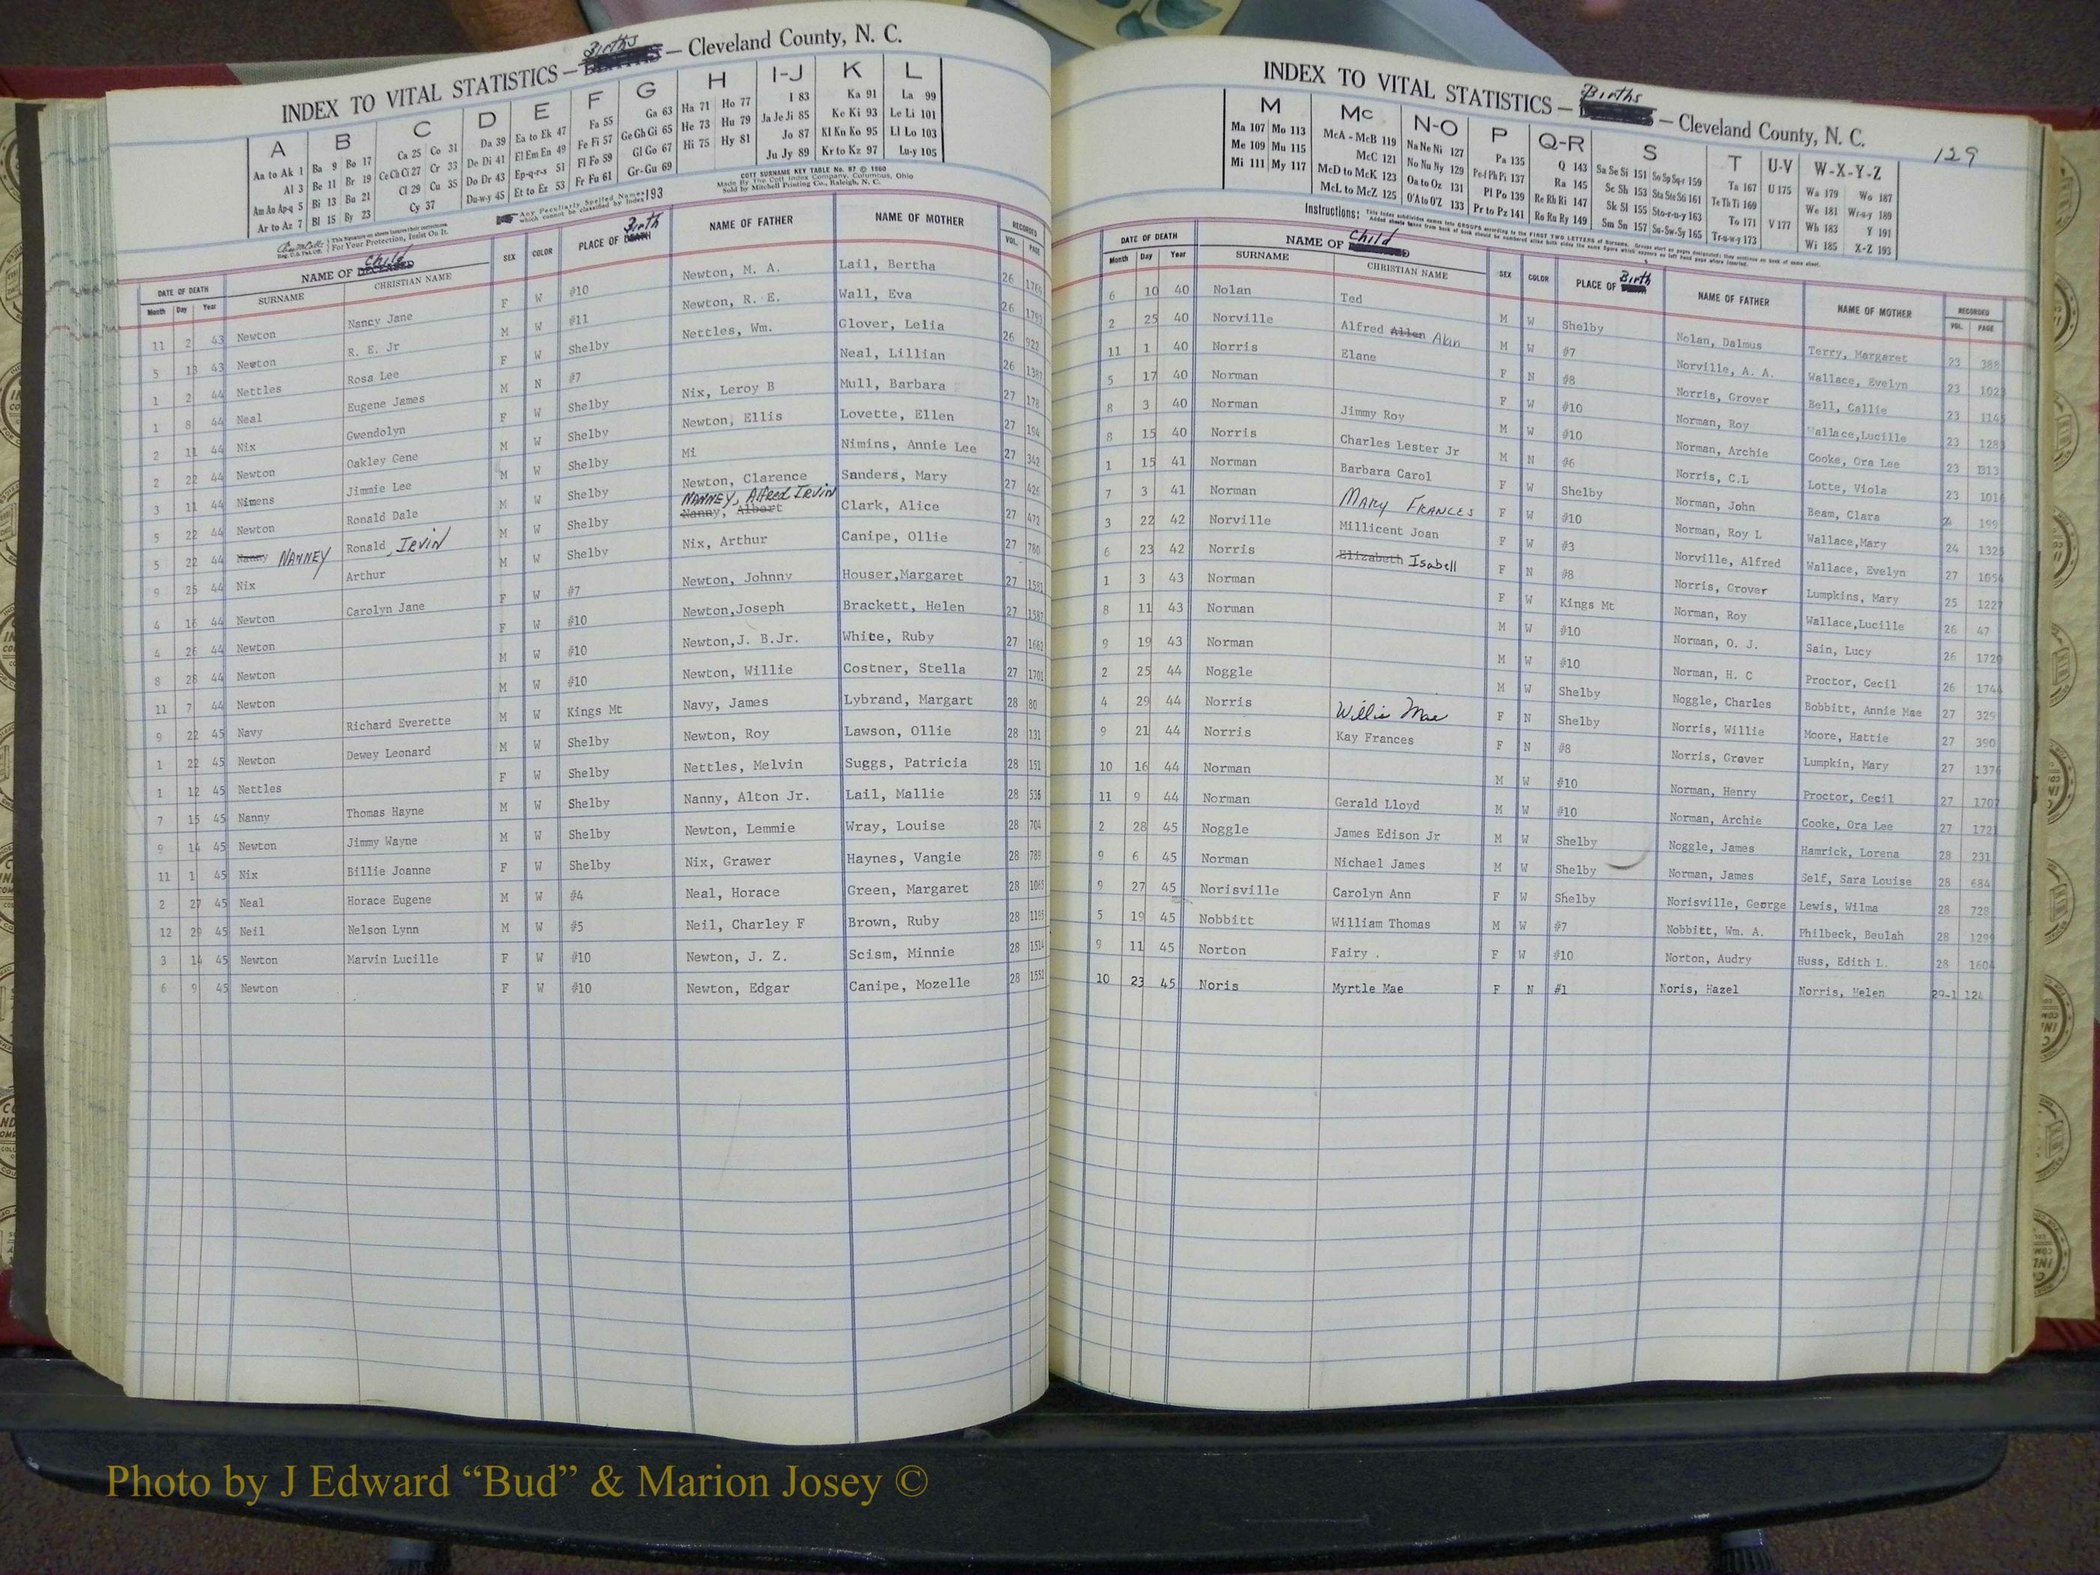 INDEX TO VITAL STATISTICS — Births — Cleveland County, N. C.
A B C D E F G H I-J K L
Aa to Ak 1 Ba 9 Bo 17 Ca 25 Co 31 Da 39 Ea to Ek 47 Fa 55 Ga 63 Ha 71 Ho 77 I 83 Ka 91 La 99
Al 3 Be 11 Br 19 Ce Ch Ci 27 Cr 33 De Di 41 El Em En 49 Fe Fi 57 Ge Gh Gi 65 He 73 Hu 79 Ja Je Ji 85 Ke Ki 93 Le Li 101
Am An Ap-q 5 Bi 13 Bu 21 Cl 29 Cu 35 Do Dr 43 Ep-q-r-s 51 Fl Fo 59 Gl Go 67 Hi 75 Hy 81 Jo 87 Kl Kn Ko 95 Ll Lo 103
Ar to Az 7 Bl 15 By 23 Cy 37 Du-w-y 45 Et to Ez 53 Fr Fu 61 Gr-Gu 69 Ju Jy 89 Kr to Kz 97 Lu-y 105
This Signature on sheets insures their correctness. For Your Protection, Insist On It.
Any Peculiarly Spelled Names which cannot be classified by index 193
COTT SURNAME KEY TABLE No. 87 © 1960
Made By The Cott Index Company, Columbus, Ohio
Sold by Mitchell Printing Co., Raleigh, N. C.
DATE OF DEATH NAME OF DECEASED Child SEX COLOR PLACE OF DEATH Birth NAME OF FATHER NAME OF MOTHER RECORDED
Month Day Year SURNAME CHRISTIAN NAME VOL. PAGE
11 2 43 Newton Nancy Jane F W #10 Newton, M. A. Lail, Bertha 26
5 13 43 Newton R. E. Jr M W #11 Newton, R. E. Wall, Eva 26 1793
1 2 44 Nettles Rosa Lee F W Shelby Nettles, Wm. Glover, Lelia 26 922
1 8 44 Neal Eugene James M N #7 Neal, Lillian 26 1387
2 11 44 Nix Gwendolyn F W Shelby Nix, Leroy B Mull, Barbara 27 178
2 22 44 Newton Oakley Gene M W Shelby Newton, Ellis Lovette, Ellen 27 194
3 11 44 Nimens Jimmie Lee M W Shelby Mi Nimins, Annie Lee 27 342
5 22 44 Newton Ronald Dale M W Shelby Newton, Clarence Sanders, Mary 27 426
5 22 44 Nanny NANNEY Ronald IRVIN M W Shelby NANNEY, Alfred IRVIN Nanny, Albert Clark, Alice 27 472
9 25 44 Nix Arthur M W Shelby Nix, Arthur Canipe, Ollie 27 780
4 16 44 Newton Carolyn Jane F W #7 Newton, Johnny Houser,Margaret 27 1581
4 26 44 Newton F W #10 Newton,Joseph Brackett, Helen 27 1587
8 28 44 Newton M W #10 Newton,J. B.Jr. White, Ruby 27 1662
11 7 44 Newton M W #10 Newton, Willie Costner, Stella 27 1701
9 22 45 Navy Richard Everette M W Kings Mt Navy, James Lybrand, Margart 28 80
1 22 45 Newton Dewey Leonard M W Shelby Newton, Roy Lawson, Ollie 28 131
1 12 45 Nettles F W Shelby Nettles, Melvin Suggs, Patricia 28 151
7 15 45 Nanny Thomas Hayne M W Shelby Nanny, Alton Jr. Lail, Mallie 28 536
9 14 45 Newton Jimmy Wayne M W Shelby Newton, Lemmie Wray, Louise 28 704
11 1 45 Nix Billie Joanne F W Shelby Nix, Grawer Haynes, Vangie 28 789
2 27 45 Neal Horace Eugene M W #4 Neal, Horace Green, Margaret 28 1065
12 29 45 Neil Nelson Lynn M W #5 Neil, Charley F Brown, Ruby 28 1195
3 14 45 Newton Marvin Lucille F W #10 Newton, J. Z. Scism, Minnie 28 1514
6 9 45 Newton F W #10 Newton, Edgar Canipe, Mozelle 28 1552
INDEX TO VITAL STATISTICS — Births — Cleveland County, N. C. 129
M Mc N-O P Q-R S T U-V W-X-Y-Z
Ma 107 Mo 113 McA - McB 119 Na Ne Ni 127 Pa 135 Q 143 Sa Se Si 151 So Sp Sq-r 159 Ta 167 U 175 Wa 179 Wo 187
Me 109 Mu 115 McC 121 No Nu Ny 129 Pe-f Ph Pi 137 Ra 145 Sc Sh 153 Sta Ste Sti 161 Te Th Ti 169 We 181 Wr-u-y 189
Mi 111 My 117 McD to McK 123 Oa to Oz 131 Pl Po 139 Re Rh Ri 147 Sk Sl 155 Sto-r-u-y 163 To 171 V 177 Wh 183 Y 191
McL to McZ 125 O'A to O'Z 133 Pr to Pz 141 Ro Ru Ry 149 Sm Sn 157 Su-Sw-Sy 165 Tr-u-w-y 173 Wi 185 X-Z 193
Instructions:
DATE OF DEATH NAME OF Child SEX COLOR PLACE OF Birth NAME OF FATHER NAME OF MOTHER RECORDED
Month Day Year SURNAME CHRISTIAN NAME VOL. PAGE
6 10 40 Nolan Ted M W Shelby Nolan, Dalmus Terry, Margaret 23 388
2 25 40 Norville Alfred Allen Akin M W #7 Norville, A. A. Wallace, Evelyn 23 1023
11 1 40 Norris Elane F N #8 Norris, Grover Bell, Callie 23 1145
5 17 40 Norman F W #10 Norman, Roy Wallace,Lucille 23 1283
8 3 40 Norman Jimmy Roy M W #10 Norman, Archie Cooke, Ora Lee 23 1313
8 15 40 Norris Charles Lester Jr M N #6 Norris, C.L Lotte, Viola 23 1016
1 15 41 Norman Barbara Carol F W Shelby Norman, John Beam, Clara 24 199
7 3 41 Norman MARY FRANCES F W #10 Norman, Roy L Wallace,Mary 24 1325
3 22 42 Norville Millicent Joan F W #3 Norville, Alfred Wallace, Evelyn 27 1054
6 23 42 Norris Elizabeth Isabell F N #8 Norris, Grover Lumpkins, Mary 25 1227
1 3 43 Norman F W Kings Mt Norman, Roy Wallace,Lucille 26 47
8 11 43 Norman M W #10 Norman, O. J. Sain, Lucy 26 1720
9 19 43 Norman M W #10 Norman, H. C Proctor, Cecil 26 1744
2 25 44 Noggle M W Shelby Noggle, Charles Bobbitt, Annie Mae 27 329
4 29 44 Norris Willie Mae F N Shelby Norris, Willie Moore, Hattie 27 390
9 21 44 Norris Kay Frances F N #8 Norris, Grover Lumpkin, Mary 27 1376
10 16 44 Norman M W #10 Norman, Henry Proctor, Cecil 27 1707
11 9 44 Norman Gerald Lloyd M W #10 Norman, Archie Cooke, Ora Lee 27 1721
2 28 45 Noggle James Edison Jr M W Shelby Noggle, James Hamrick, Lorena 28 231
9 6 45 Norman Nichael James M W Shelby Norman, James Self, Sara Louise 28 684
9 27 45 Norisville Carolyn Ann F W Shelby Norisville, George Lewis, Wilma 28 728
5 19 45 Nobbitt William Thomas M W #7 Nobbitt, Wm. A. Philbeck, Beulah 28 1299
9 11 45 Norton Fairy . F W #10 Norton, Audry Huss, Edith L. 28 1604
10 23 45 Noris Myrtle Mae F N #1 Noris, Hazel Norris, Helen 29-1 124
Photo by J Edward “Bud” & Marion Josey ©